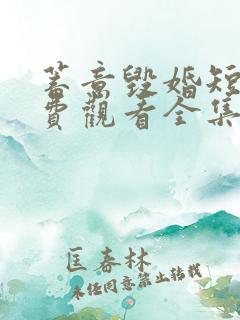 蓄意毀婚短
費觀看全集
匡春林
未经同意禁止转载